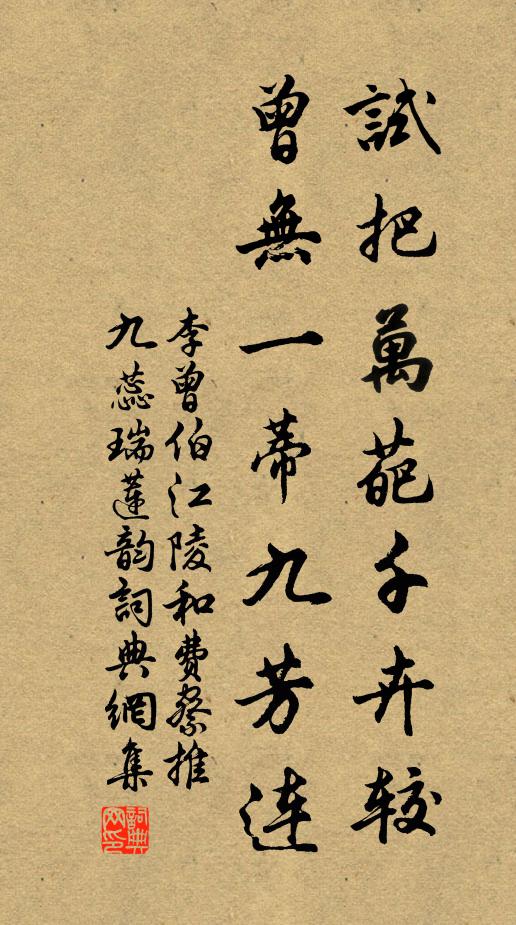 試把萬葩千卉较
曾無一蒂九芳連
李曾伯江陵和費察推
九蕊瑞蓮韵詞典網集
詞典網印